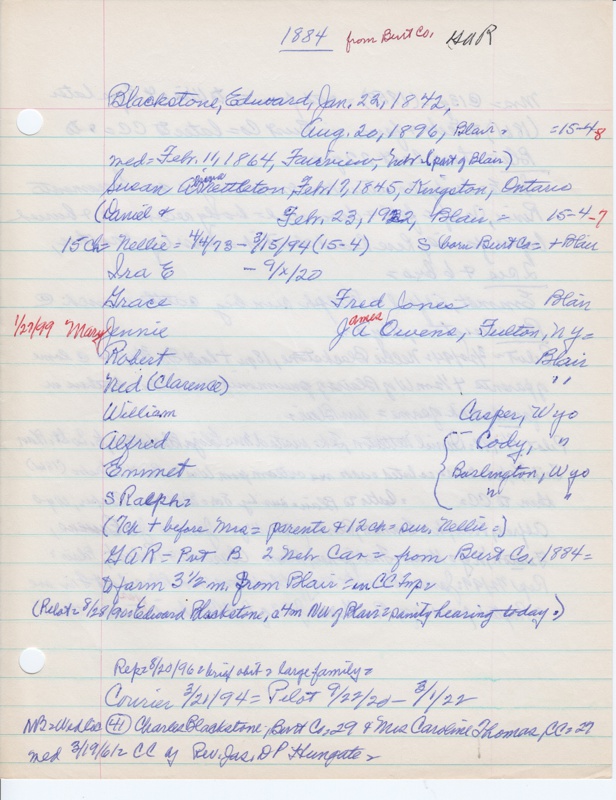 1884 from Burt Co. GAR
Blackstone, Edward, Jan. 22, 1842,
Aug. 20, 1896, Blair = 15-48
med = Feb. 11, 1864, Fairview, Nebr (part of Blair)
Susan Nettleton, Feb 17, 1845, Kingston, Ontario
(Daniel & Feb. 23, 1922, Blair, = 15-4-7
15 ch = Nellie = 4/4/73 - 3/15/94 (15-4) S born Burt Co = + Blair
Ira E - 9/x/20
Grace Fred Jones Blair
1/27/99 Mary Jennie James A Owens, Fulton, Ny =
Robert Blair
Ned (Clarence) " "
William Casper, Wyo
Alfred Cody, "
Emmet Burlington, Wyo
S Ralph = " "
(7ch + before Mrs = parents & 12 ch = sur. Nellie =)
GAR = Pvt B 2 Nebr Cav = from Burt Co, 1884 =
D farm 3 1/2 m. from Blair = in CC Twp =
(Pilot = 8/28/90 = Edward Blackstone, a 4m NW of Blair = sanity hearing today =)
Rep = 8/20/96 = brief obit = large family =
Courier 3/21/94 = Pilot 9/22/20 - 3/1/22
NB = Wed Lic (41) Charles Blackstone, Burt Co = 29 & Mrs Caroline Thomas, CC = 27
med 3/19/61 = CC by Rev. Jas. DP Hungate =